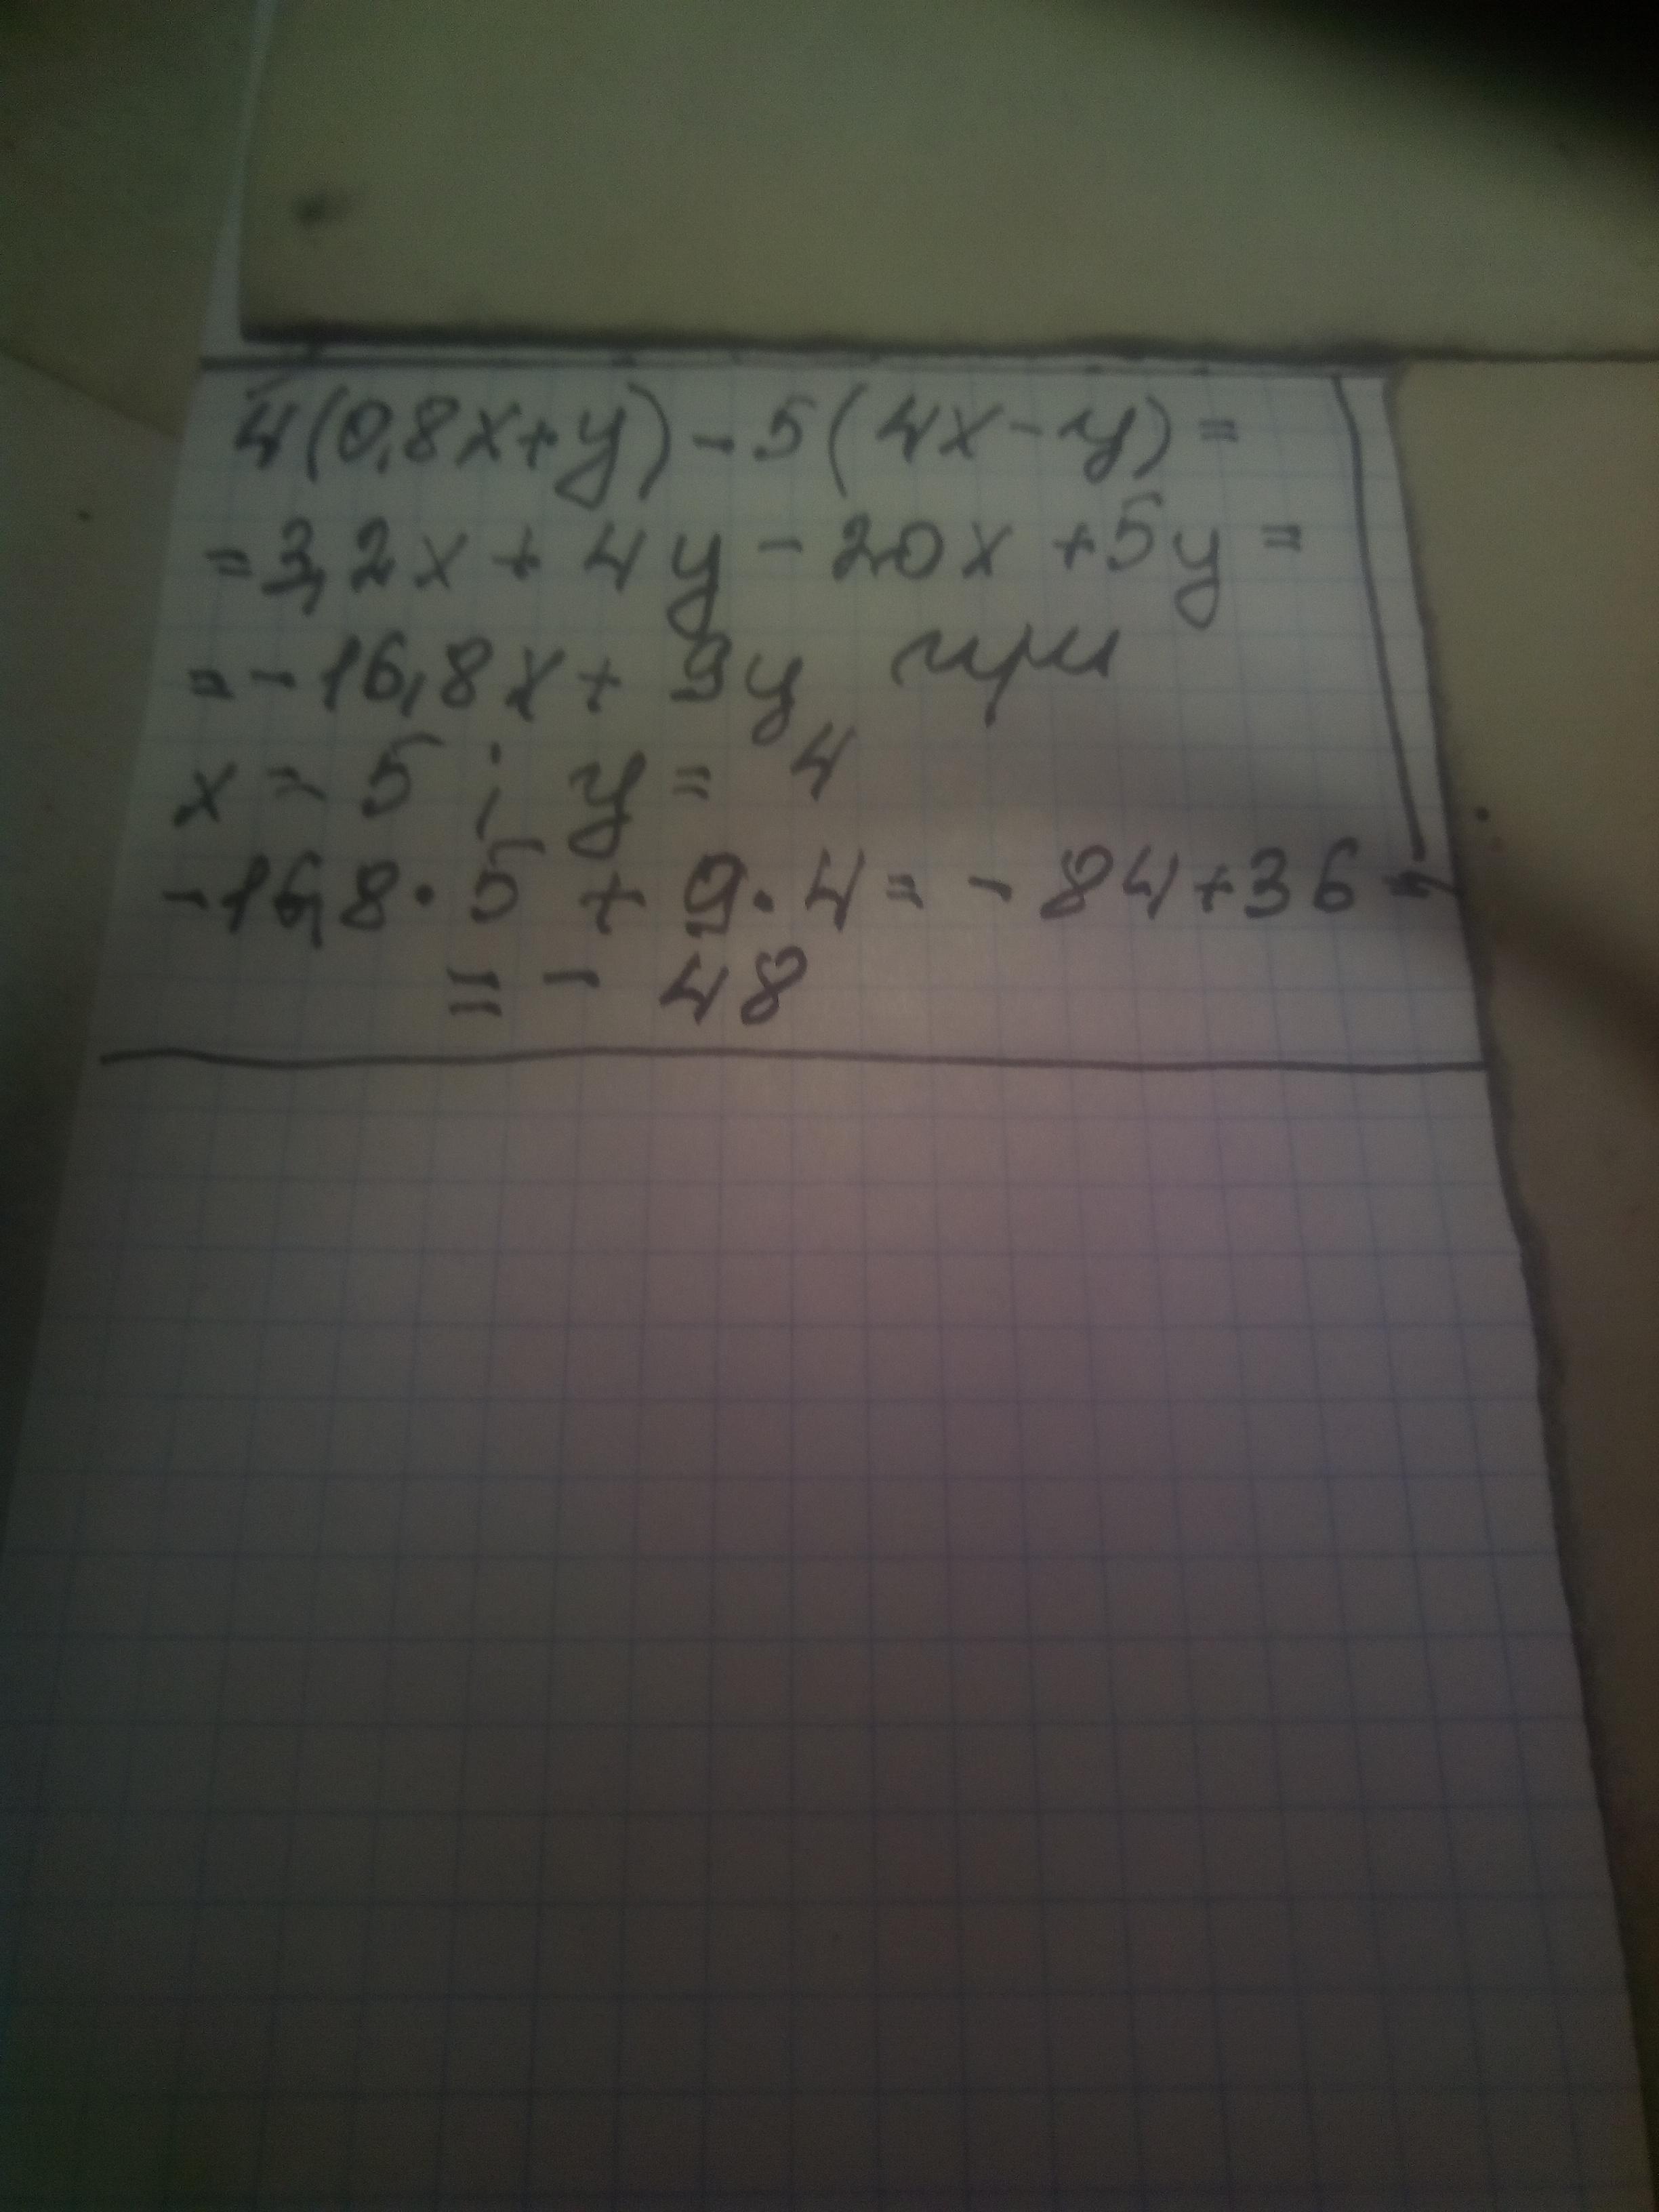 4(0,8x+y)-5(4x-y)=
=3,2x+4y-20x+5y=
=-16,8x+9y при
x=5; y=4
-16,8·5+9·4=-84+36=
=-48